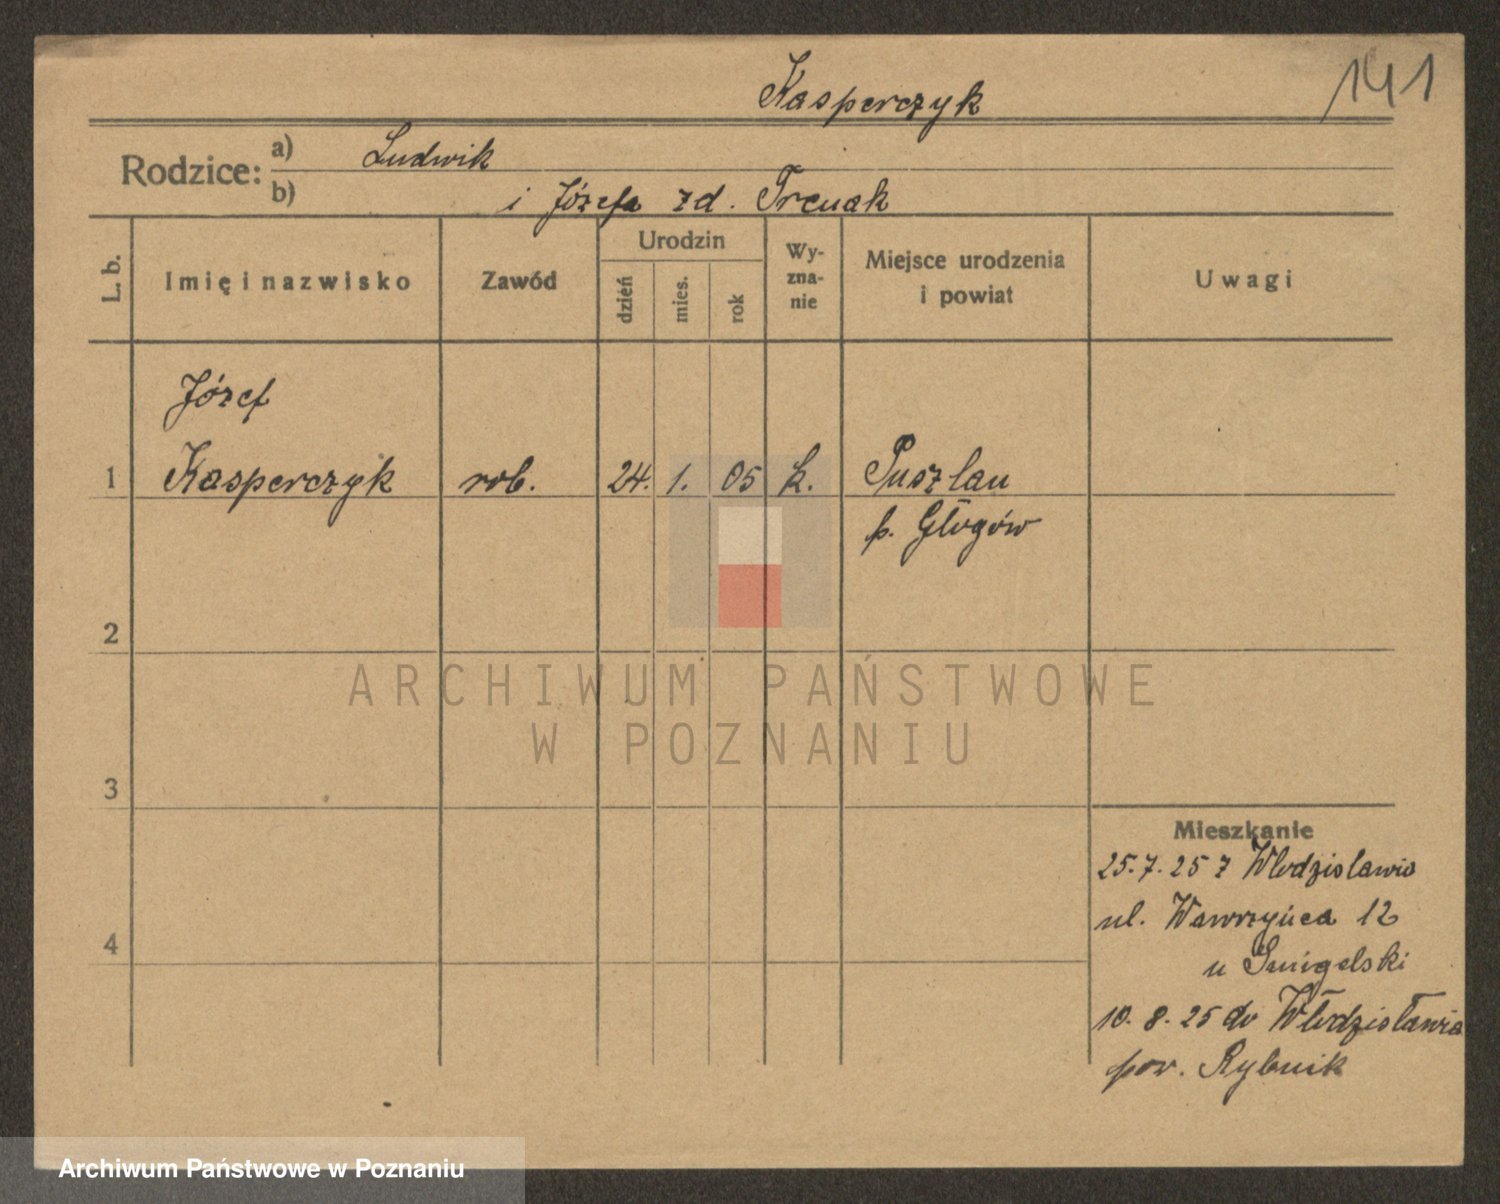 Kasperczyk
141
Rodzice: a) Ludwik
b) i Józefa zd. Trcuak
L. b.
Imię i nazwisko
Zawód
Urodzin
dzień
mies.
rok
Wy-
zna-
nie
Miejsce urodzenia
i powiat
Uwagi
Józef
1 Kasperczyk rob. 24. 1. 05 k. Puszlau
p. Głogów
2
ARCHIWUM PAŃSTWOWE
W POZNANIU
3
Mieszkanie
25.7.25 z Wlodzislawia
ul. Wawrzyńca 12
4
u Smigelski
10.8.25 do Włodzisławia
pow. Rybnik
Archiwum Państwowe w Poznaniu